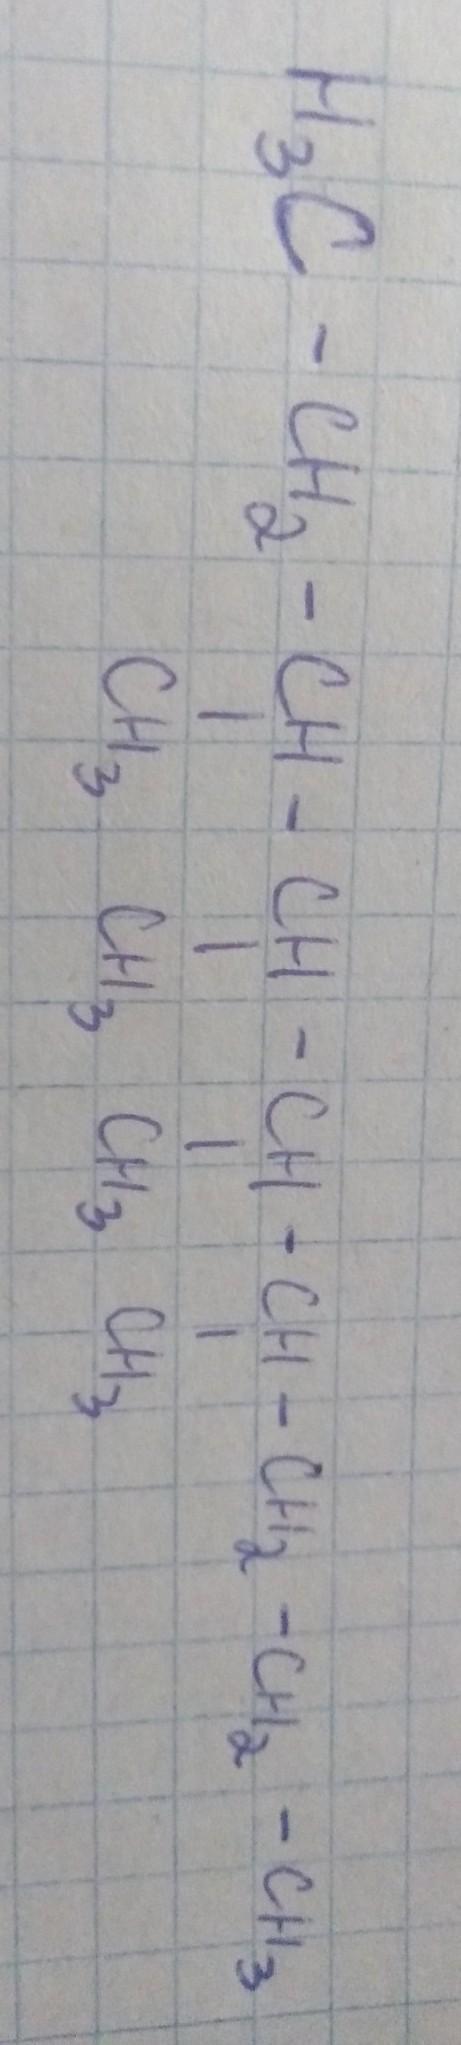 H₃C - CH₂ - CH - CH - CH - CH - CH₂ - CH₂ - CH₃
| | | |
CH₃ CH₃ CH₃ CH₃